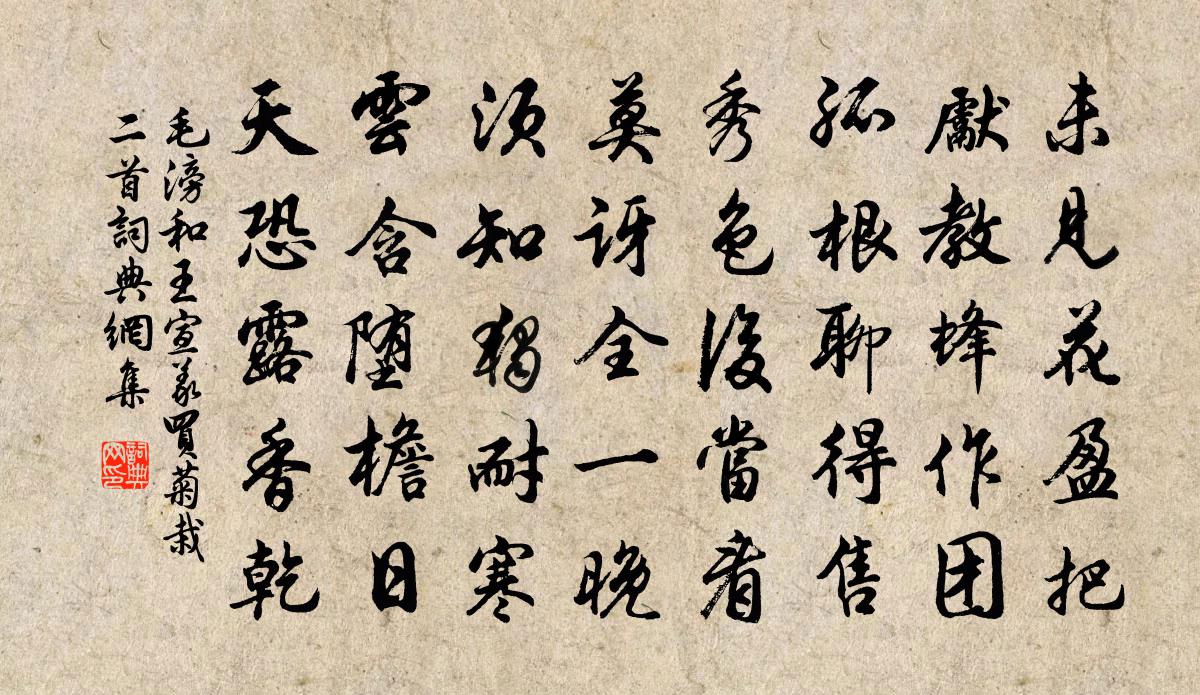 未見花盈把
獻教蜂作团
孤根聊得售
秀色後當看
莫訝全一晚
須知獨耐寒
雲含堕檐日
天恐露香乾
毛滂和王宣義買菊栽
二首詞典網集
詞典
网印